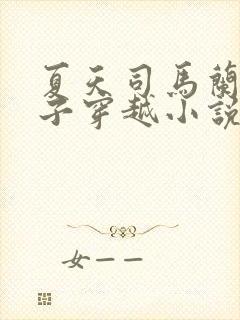 夏天司馬蘭
子穿越小說
女一一